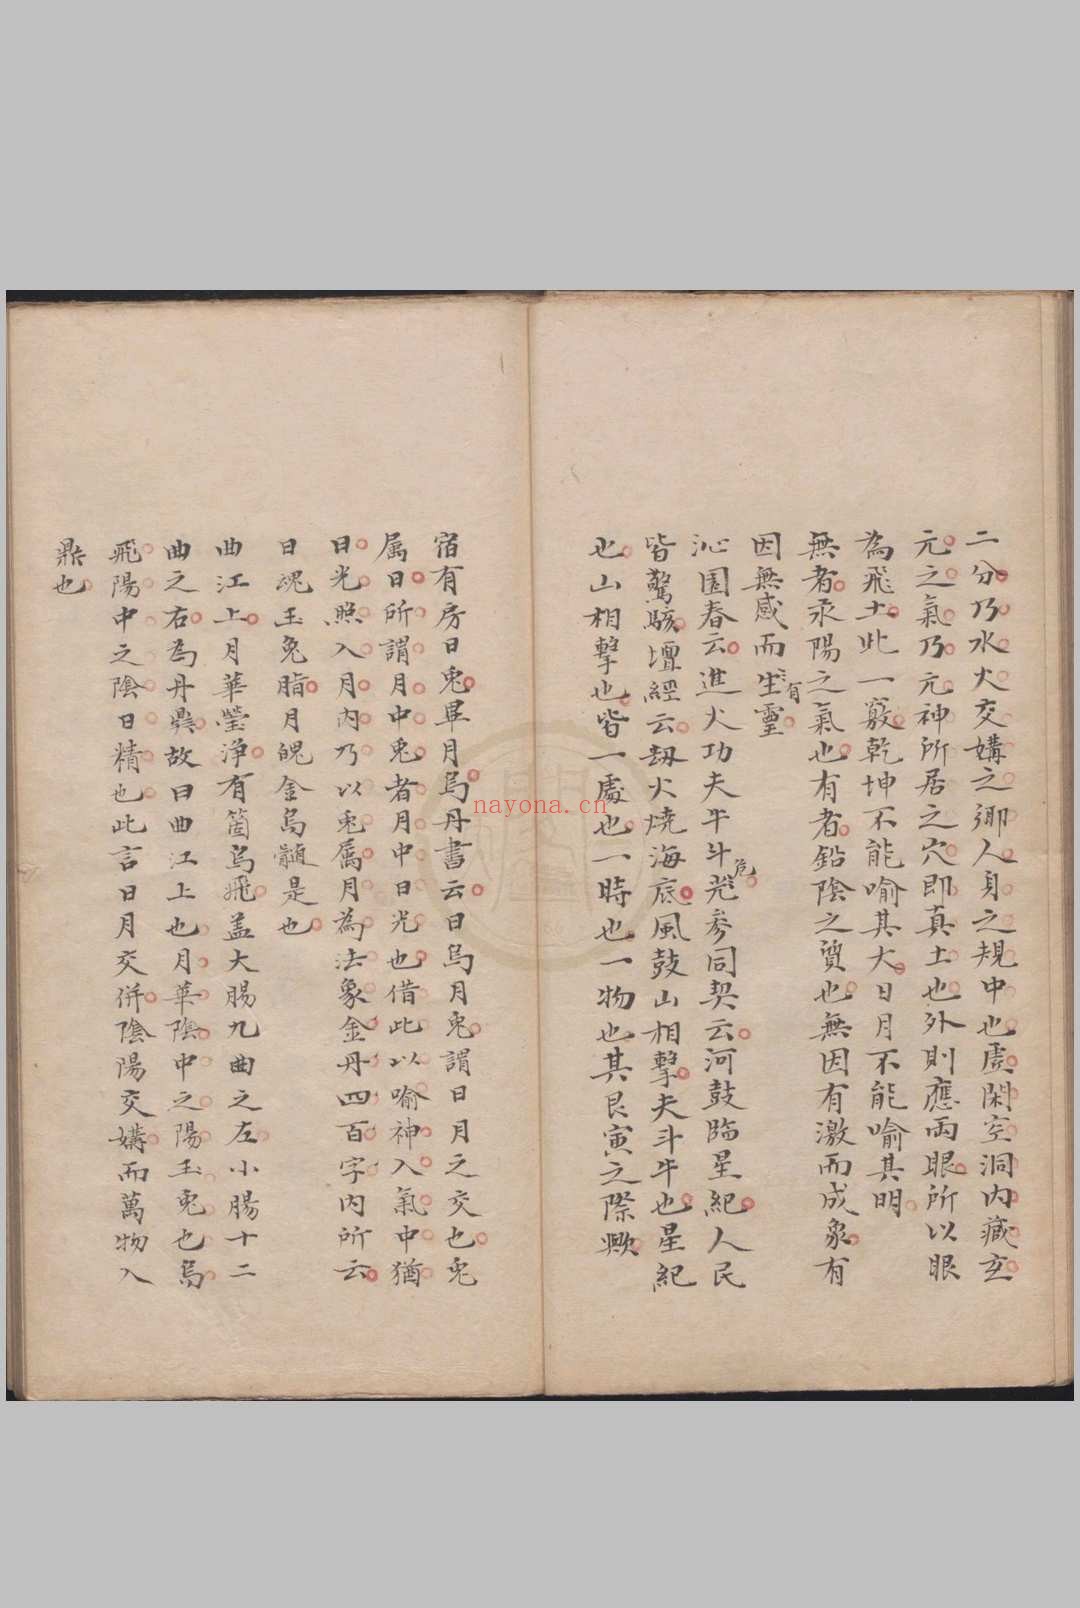 二分乃水火交媾之鄉人身之規中也虛閑空洞內藏玄
元之氣乃元神所居之穴即真土也外則應兩眼所以眼
為飛土此一竅乾坤不能喻其大日月不能喻其明
無者汞陽之氣也有者鉛陰之質也無因有激而成象有
因無感而生靈
有
沁園春云進火功夫牛斗危參同契云河鼓臨星紀人民
危
皆驚駭壇經云刼火燒海底風鼓山相擊夫斗牛也星紀
也山相擊也皆一處也一時也一物也其艮寅之際歟
宿有房日兎畢月烏丹書云日烏月兎謂日月之交也兎
属日所謂月中兎者月中日光也借此以喻神入氣中猶
日光照入月內乃以兎属月為法象金丹四百字內所云
日魂玉兎脂月魄金烏髓是也
曲江上月華瑩淨有箇烏飛盖大腸九曲之左小腸十二
曲之右為丹鼎故曰曲江上也月華陰中之陽玉兎也烏
飛陽中之陰日精也此言日月交併陰陽交媾而萬物入
鼎也
nayona.cn